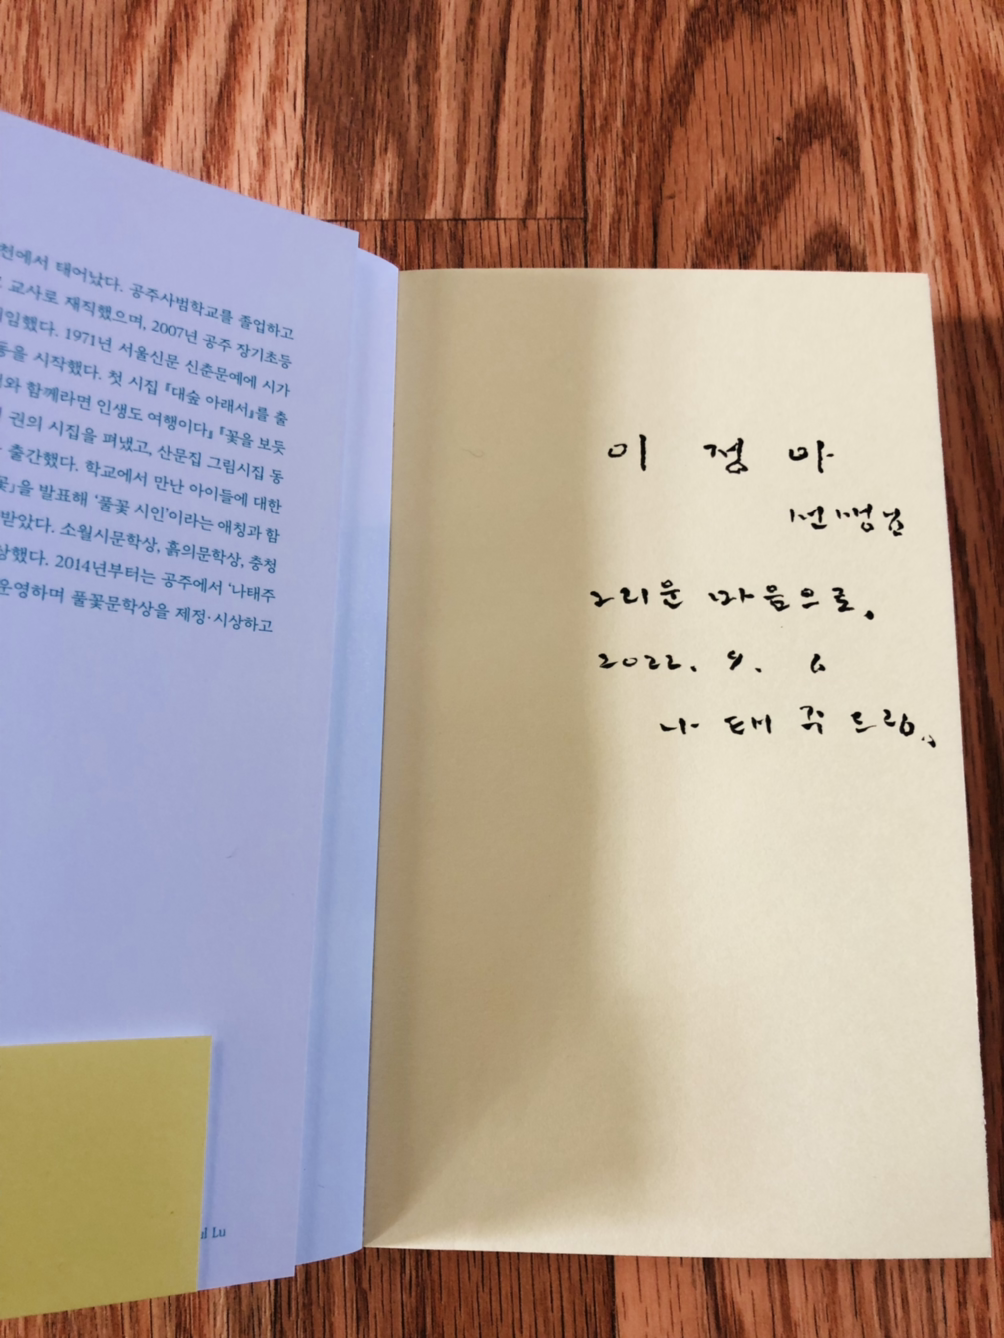 천에서 태어났다. 공주사범학교를 졸업하고
교사로 재직했으며, 2007년 공주 장기초등
임했다. 1971년 서울신문 신춘문예에 시가
동을 시작했다. 첫 시집 『대숲 아래서』를 출
와 함께라면 인생도 여행이다』 『꽃을 보듯
권의 시집을 펴냈고, 산문집 그림시집 동
출간했다. 학교에서 만난 아이들에 대한
꽃」을 발표해 ‘풀꽃 시인’이라는 애칭과 함
받았다. 소월시문학상, 흙의문학상, 충청
상했다. 2014년부터는 공주에서 ‘나태주
운영하며 풀꽃문학상을 제정·시상하고
Lu
이 정 아
선생님
그리운 마음으로.
2022. 9. 6
나 태 주 드림.